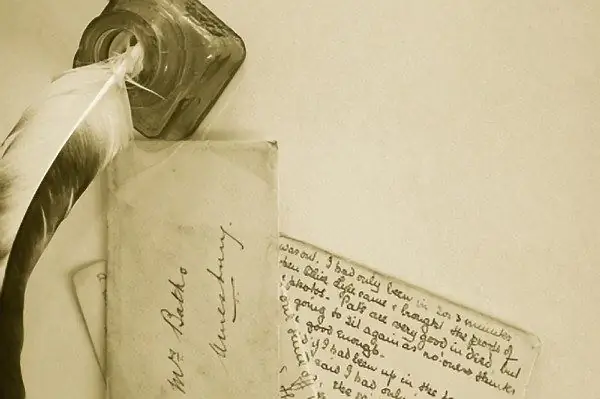 Mrs Batho
Amesbury.
was out. I had only been in 2 or 3 minutes
when came & brought the proofs of
photos. Pats are very good indeed, but
going to sit again as no one thinks
good enough.
if I had been up in the
said I had only
the